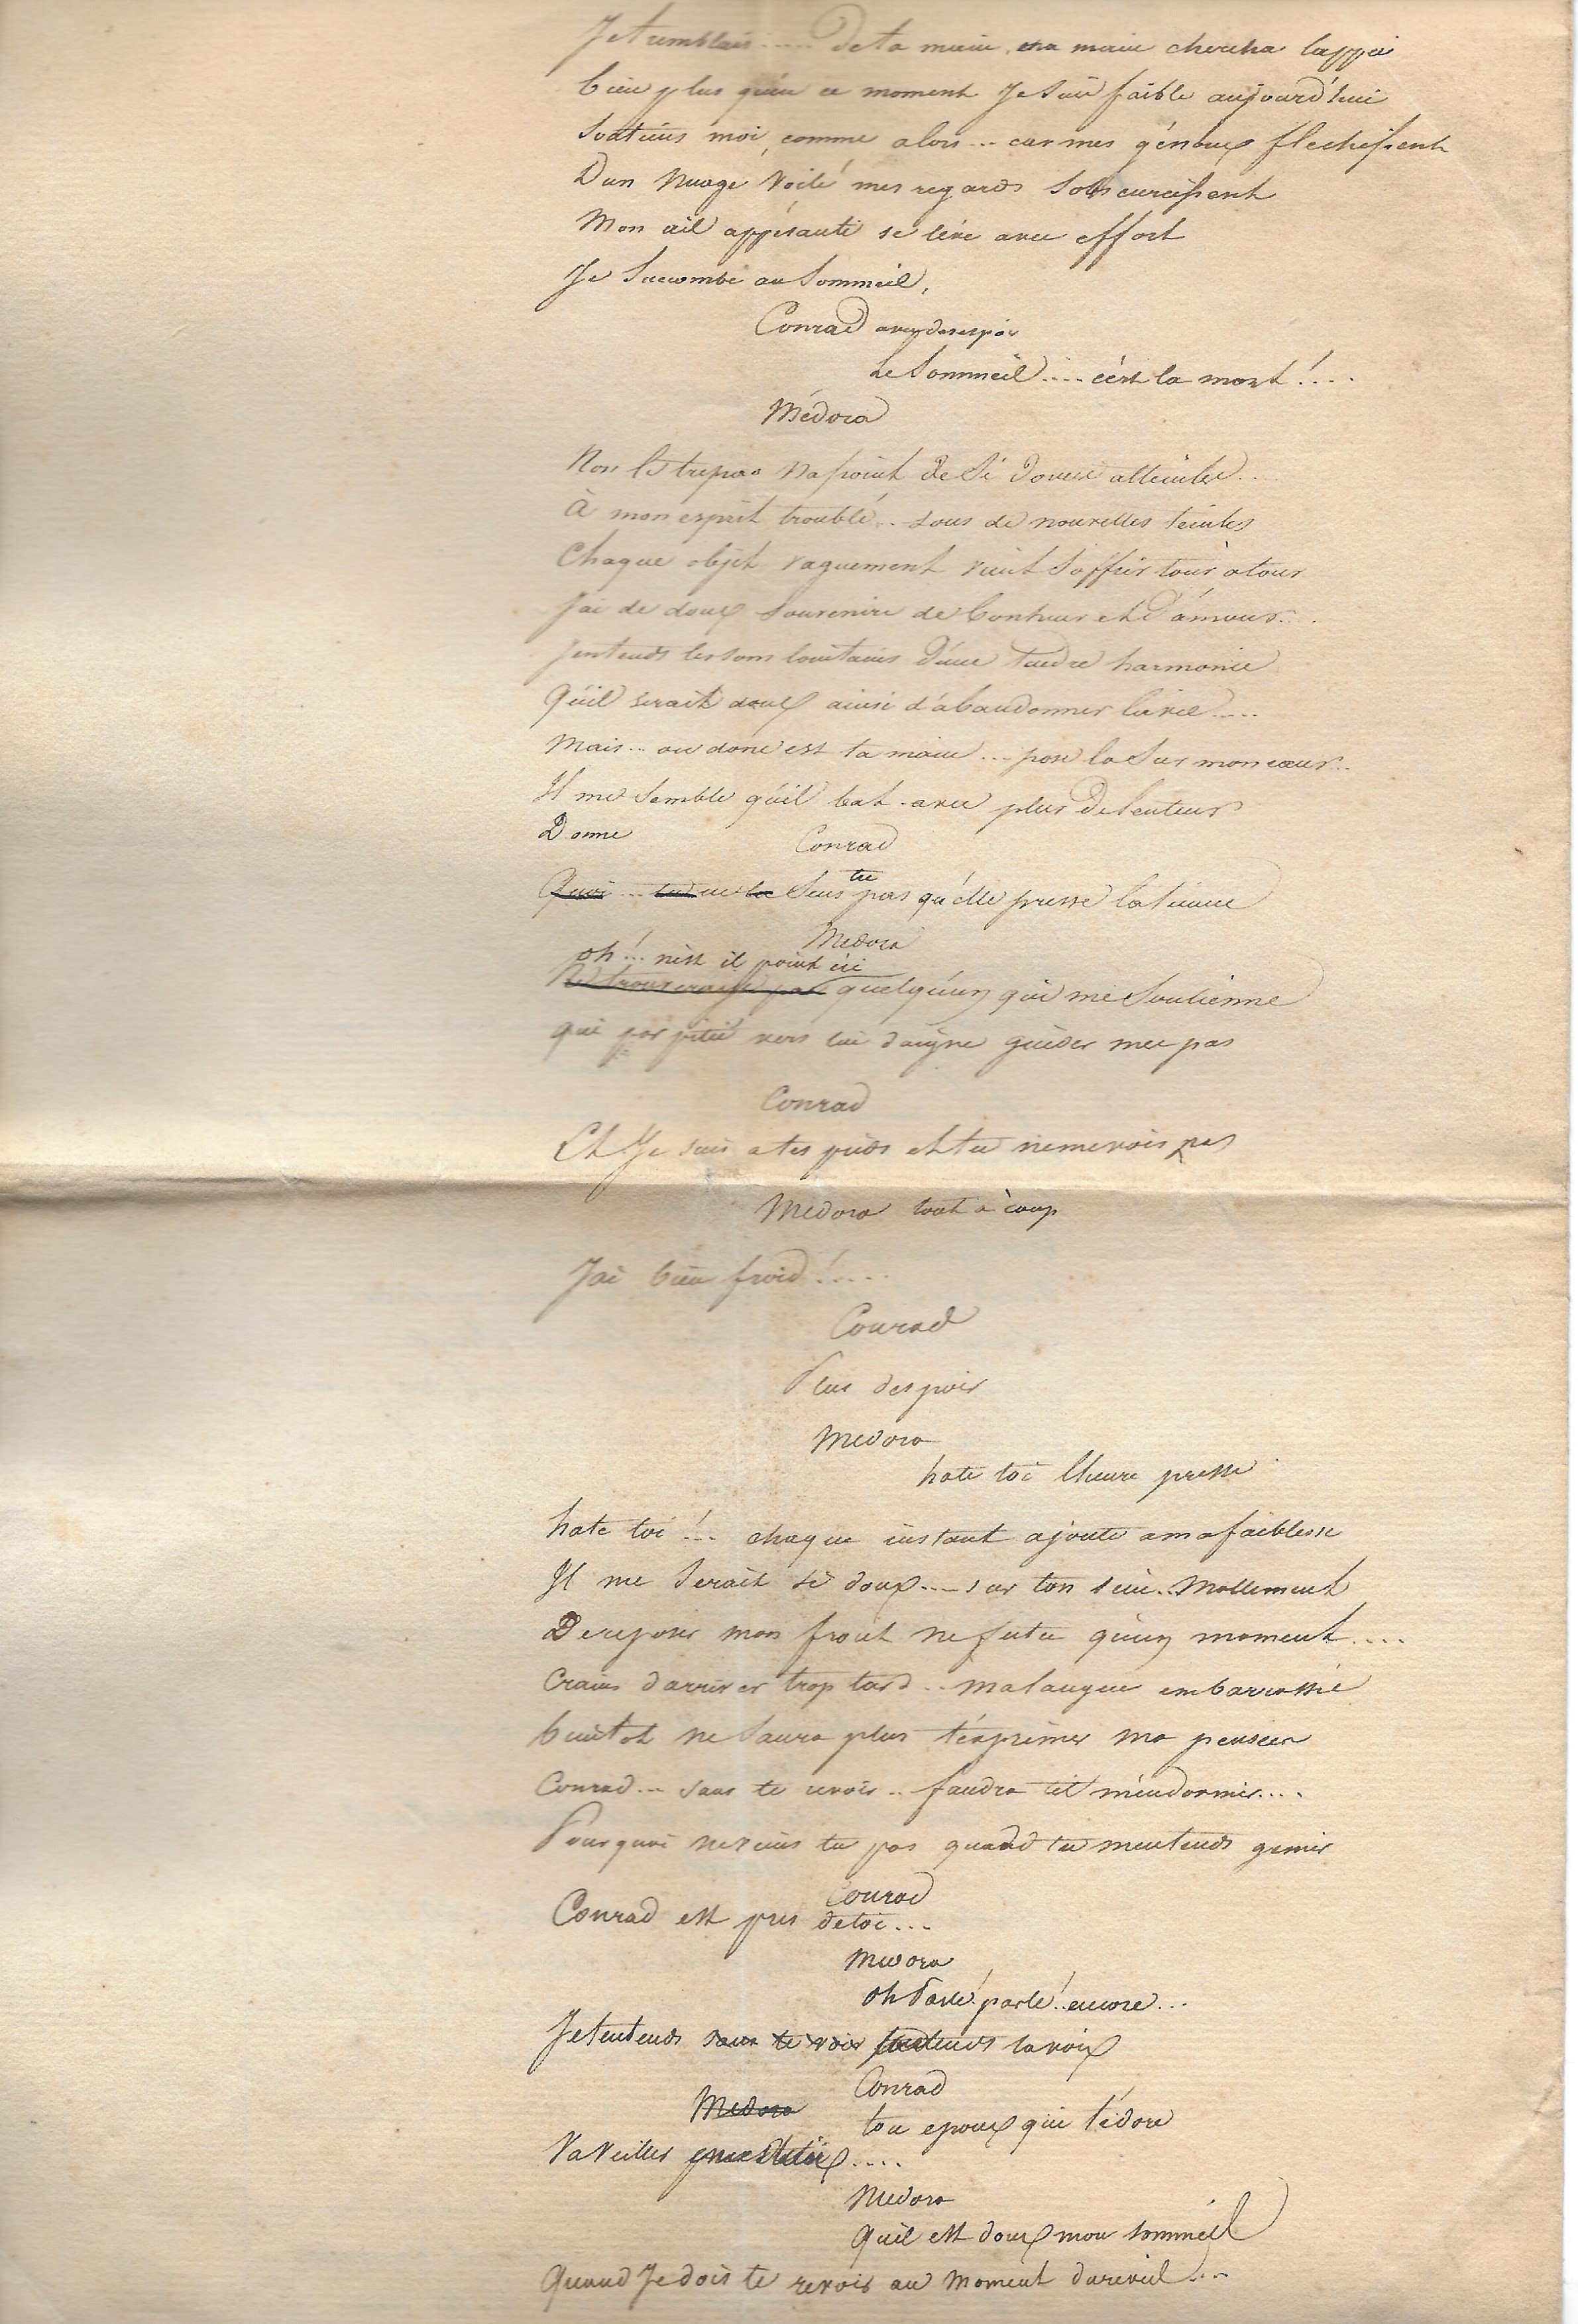 Je tremblais..... de ta main, ma main chercha l'appui
bien plus qu'en ce moment Je suis faible aujourd'hui
Soutiens moi, comme alors... car mes génoux flechissent
D'un Nuage Voilé mes regards s'obscurcissent
Mon œil appésanti se lève avec effort
Je succombe au Sommeil,
Conrad avec desespoir
Le Sommeil.... c'est la mort!....
Médora
Non le trepas N'a point de si douces atteintes....
à mon esprit troublé.. sous de nouvelles teintes
Chaque objet vaguement vient s'offrir tour à tour
J'ai de doux souvenirs de bonheur et d'amour...
J'entends les sons lointains d'une tendre harmonie
Qu'il serait doux ainsi d'abandonner la vie.....
Mais... ou donc est ta main... pose la sur mon cœur..
Il me semble qu'il bat avec plus de lenteur
Donne
Conrad
Quoi... tu ne la Sens tu pas qu'elle presse la tienne
Medora
oh!.. n'est il point ici
Ne trouverai je pas quelqu'un qui me soutienne
qui par pitié vers lui daigne guider mes pas
Conrad
Et Je suis a tes pieds et tu ne me vois pas
Medora tout à coup
J'ai bien froid!.....
Conrad
Plus d'espoir
Medora
hate toi l'heure presse
hate toi!... chaque instant ajoute a ma faiblesse
Il me Serait si doux.... sur ton sein.. Mollement
De reposer mon front ne fut ce qu'un moment....
Crains d'arriver trop tard.. ma langue embarrassée
bientot ne Saura plus t'exprimer ma pensée
Conrad... sans te revoir.. faudra t'il m'endormir....
Pourquoi ne viens tu pas quand tu m'entends gemir
Conrad
Conrad est pres de toi...
Medora
oh Parle! parle! encore...
Je t'entends sans te voir j'entends ta voix
Conrad
Medora
ton epoux qui t'adore
Va Veiller près de toi....
Medora
Qu'il est doux mon sommeil
Quand Je dois te revoir au Moment du reveil...